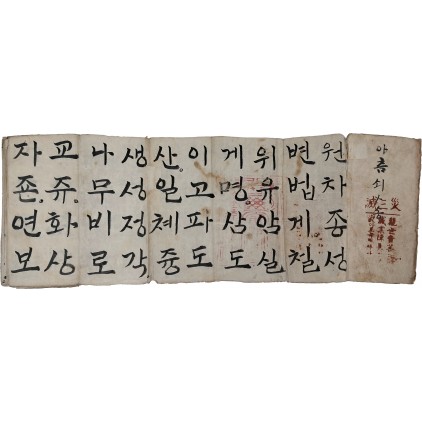 아츰쇠
원차종성
변법게철
위유암실
게명。삼도
이고파도
산。일체즁
생성정각
나무비로
교쥬。화상
자죤。연보